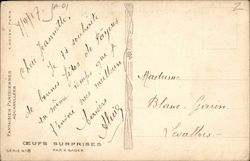 7/4/17
Chère Jeannette,
Je te souhaite
de bonnes fêtes de Pâques
en même temps que je
t'envoie mes meilleurs
baisers
Madame
Blanc Garin
Levallois
ŒUFS SURPRISES
PAR X. SAGER
SÉRIE N° 8
FANTAISIES PARISIENNES
AQUARELLÉES